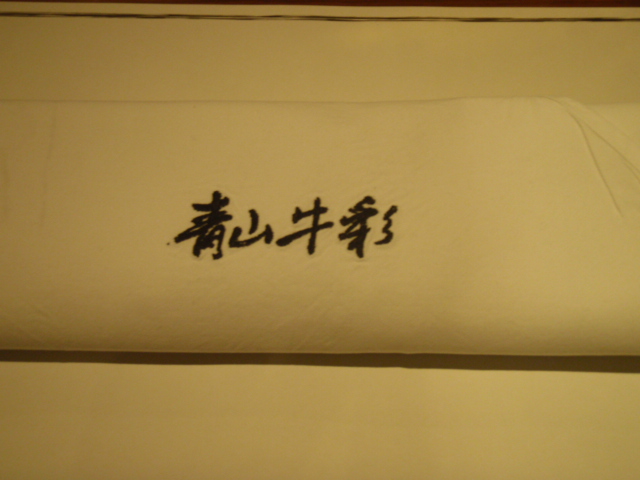 青山牛彩